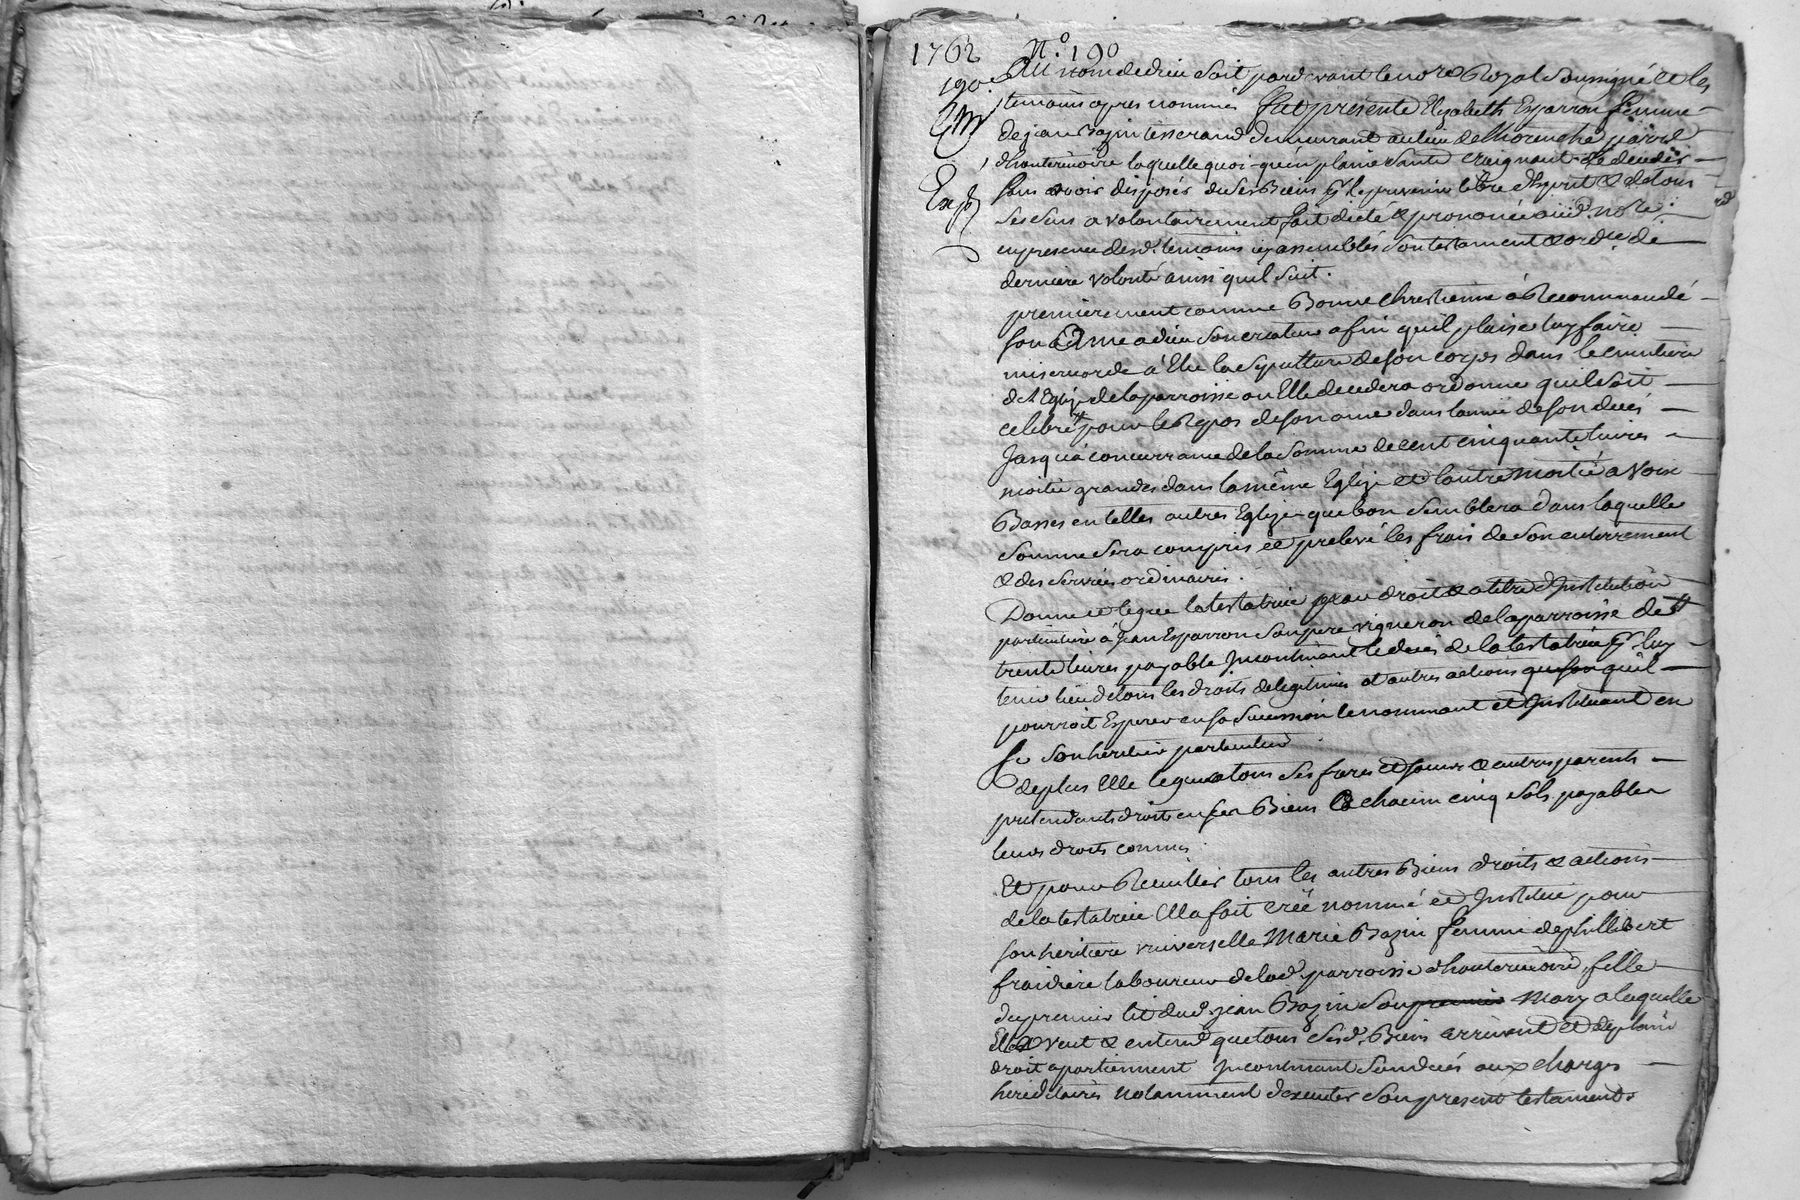 1762 N.o 190
190.e
Au nom de dieu soit pardevant le no.re Royal soussigné et les
temoins apres nommés fut presente Elizabeth Esparron femme
de jean Bazin tisserand demeurant au lieu de parroisse
d'hauterivoire laquelle quoi-qu'en plaine santé craignant de deceder
sans avoir disposés de ses Biens libre d'Esprit & de tous
Exp.
ses sens a volontairement fait dicté & prononcé aud. no.re
en presence desd. temoins icy assemblés son testament & ord.ce de
derniere volonté ainsi quil suit.
premierement comme Bonne Chrestienne à Recommandé
son Ame a dieu son createur afin qu'il plaise luy faire
misericorde à Elu la sepulture de son corps dans le cimetiere
de l'Eglize de la parroisse ou Elle decedera ordonne quil soit
celebré pour le Repos de son ame dans lannée de son decés
Jusqu'a concurrance de la somme de cent cinquante livres
moitié grandes dans la même Eglize et l'autre moitié a voix
Basses en telles autres Eglize que bon semblera dans laquelle
somme sera compris et prelevé les frais de son enterrement
& des services ordinaires.
Donne et legue la testatrice par droit & a titre d'Institution
particuliere à Jean Esparron son pere vigneron de la parroisse de
trente livres payable Incontinant le decés de la testatrice p.r luy
tenir lieu de tous les droits de legitimes et autres actions qu'il
pourroit Esperer en sa succession le nommant et Instituant en
ce son heritier particulier
de plus Elle legue a tous ses freres et soeurs & autres parents
pretendants droits en ses Biens a chacun cinq sols payables
leurs droits connus
Et pour Recuillir tous les autres Biens droits & actions
de la testatrice Elle a fait créé nommé et Institué pour
son heritiere universelle Marie Bazin femme de phillibert
fraidiere laboureur de lad. parroisse d'hauterivoire, fille
du premier lit dud. jean Bazin son premier mary a laquelle
Elle veut & entend que tous sesd. Biens arrivent et de plain
droit apartiennent Incontinant son decés aux charges
hereditaires notamment d'executer son present testament